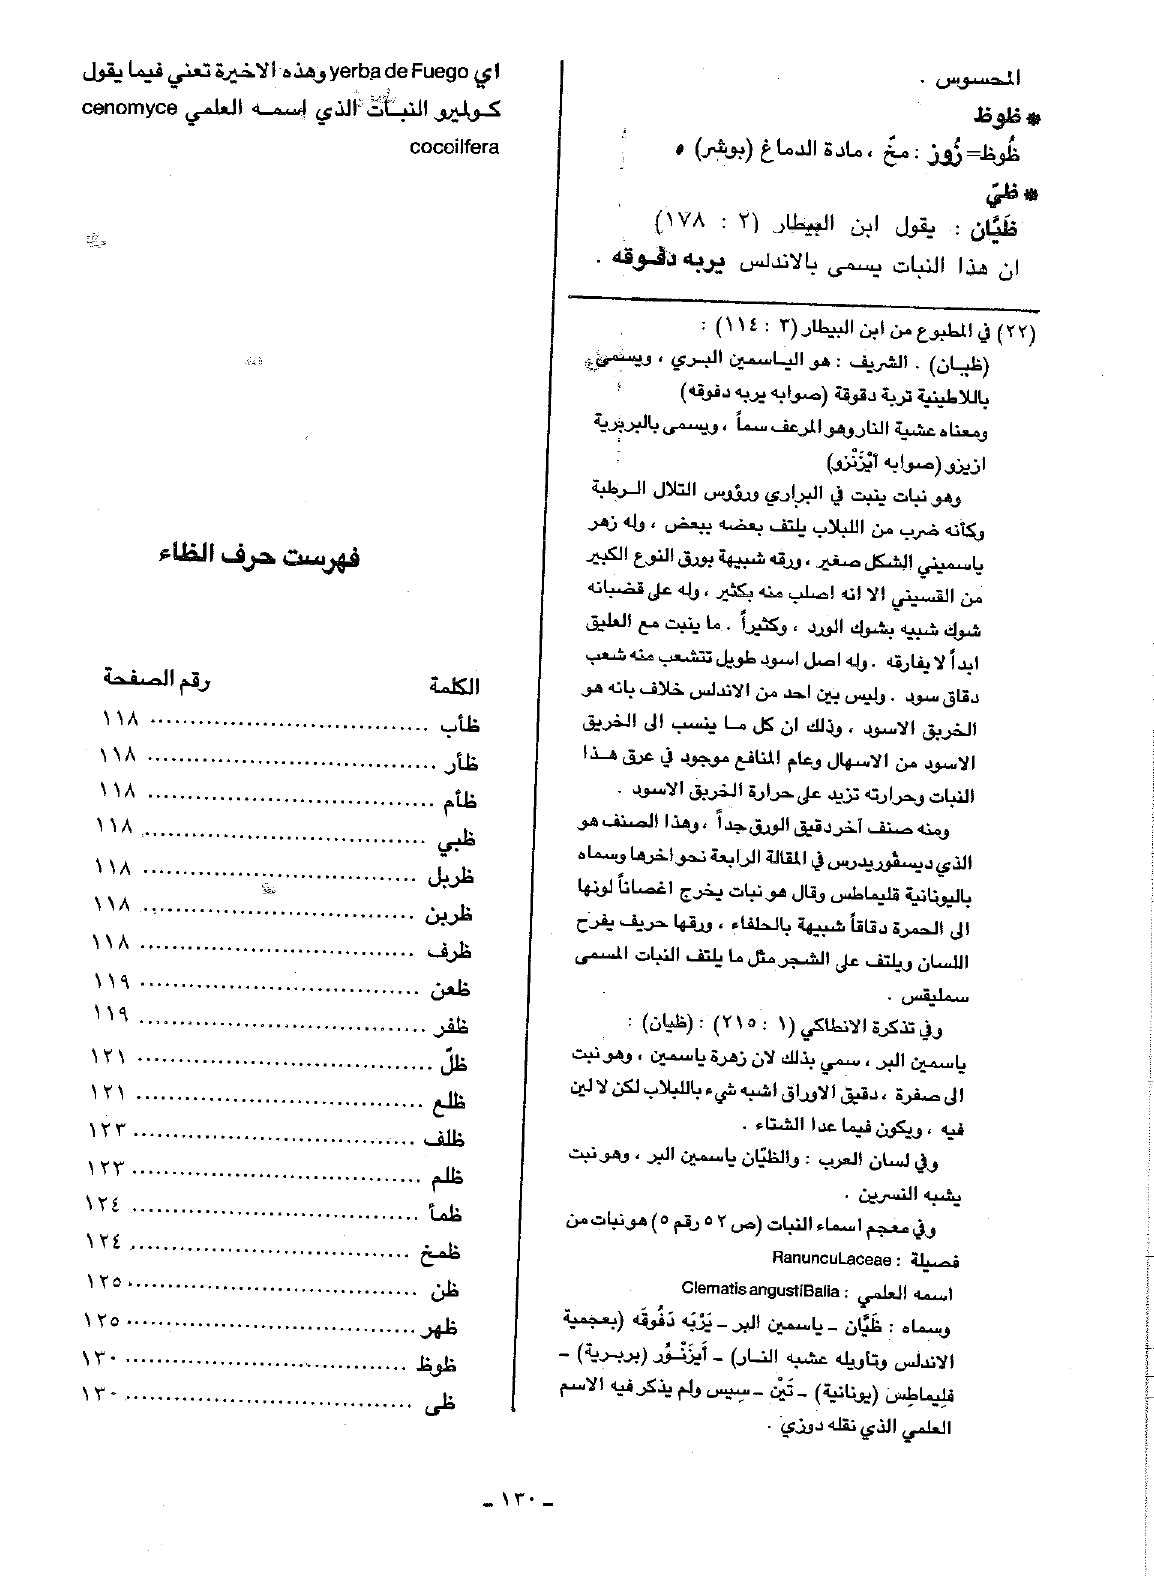 المحسوس .
* ظوظ
ظُوظ= زُوز : مخّ ، مادة الدماغ (بوشر) •
* ظيّ
ظَيَّان : يقول ابن البيطار (٢ : ١٧٨)
ان هذا النبات يسمى بالاندلس يربه دفوقه .
اي yerba de Fuego وهذه الاخيرة تعني فيما يقول
كولميرو النبات الذي اسمه العلمي cenomyce
cocoilfera
(٢٢) في المطبوع من ابن البيطار (٣ : ١١٤) :
(ظيان) . الشريف : هو الياسمين البري ، ويسمى
باللاطينية تربة دقوقة (صوابه يربه دفوقه)
ومعناه عشبة النار وهو المرعف سماً ، ويسمى بالبربرية
ازيزو (صوابه أيْزَنْزو)
وهو نبات ينبت في البراري ورؤوس التلال الرطبة
وكأنه ضرب من اللبلاب يلتف بعضه ببعض ، وله زهر
ياسميني الشكل صغير ، ورقه شبيهة بورق النوع الكبير
من القسيني الا انه اصلب منه بكثير ، وله على قضبانه
شوك شبيه بشوك الورد ، وكثيراً . ما ينبت مع العليق
ابداً لا يفارقه . وله اصل اسود طويل تتشعب منه شعب
دقاق سود . وليس بين احد من الاندلس خلاف بانه هو
الخربق الاسود ، وذلك ان كل ما ينسب الى الخربق
الاسود من الاسهال وعام المنافع موجود في عرق هذا
النبات وحرارته تزيد على حرارة الخربق الاسود .
ومنه صنف آخر دقيق الورق جداً ، وهذا الصنف هو
الذي ديسقوريدرس في المقالة الرابعة نحو اخرها وسماه
باليونانية قليماطس وقال هو نبات يخرج اغصاناً لونها
الى الحمرة دقاقاً شبيهة بالحلفاء ، ورقها حريف يفرح
اللسان ويلتف على الشجر مثل ما يلتف النبات المسمى
سمليقس .
وفي تذكرة الانطاكي (١ : ٢١٥) : (ظيان) :
ياسمين البر ، سمي بذلك لان زهرة ياسمين ، وهو نبت
الى صفرة ، دقيق الاوراق اشبه شيء باللبلاب لكن لا لين
فيه ، ويكون فيما عدا الشتاء .
وفي لسان العرب : والظيّان ياسمين البر ، وهو نبت
يشبه النسرين .
وفي معجم اسماء النبات (ص ٥٢ رقم ٥) هو نبات من
فصيلة : RanuncuLaceae
اسمه العلمي : Clematis angustiBalia
وسماه : ظَيَّان – ياسمين البر – يَرْبَه دَفُوقَه (بعجمية
الاندلس وتأويله عشبه النار) – أَيزَنْزُور (بربرية) –
قليماطِس (يونانية) – تَيْن – سِيس ولم يذكر فيه الاسم
العلمي الذي نقله دوزي .
فهرست حرف الظاء
الكلمة رقم الصفحة
ظأب .......... ١١٨
ظأر .......... ١١٨
ظأم .......... ١١٨
ظبي .......... ١١٨
ظربل .......... ١١٨
ظربن .......... ١١٨
ظرف .......... ١١٨
ظعن .......... ١١٩
ظفر .......... ١١٩
ظلّ .......... ١٢١
ظلع .......... ١٢١
ظلف .......... ١٢٣
ظلم .......... ١٢٣
ظمأ .......... ١٢٤
ظمخ .......... ١٢٤
ظن .......... ١٢٥
ظهر .......... ١٢٥
ظوظ .......... ١٣٠
ظى .......... ١٣٠
– ١٣٠ –